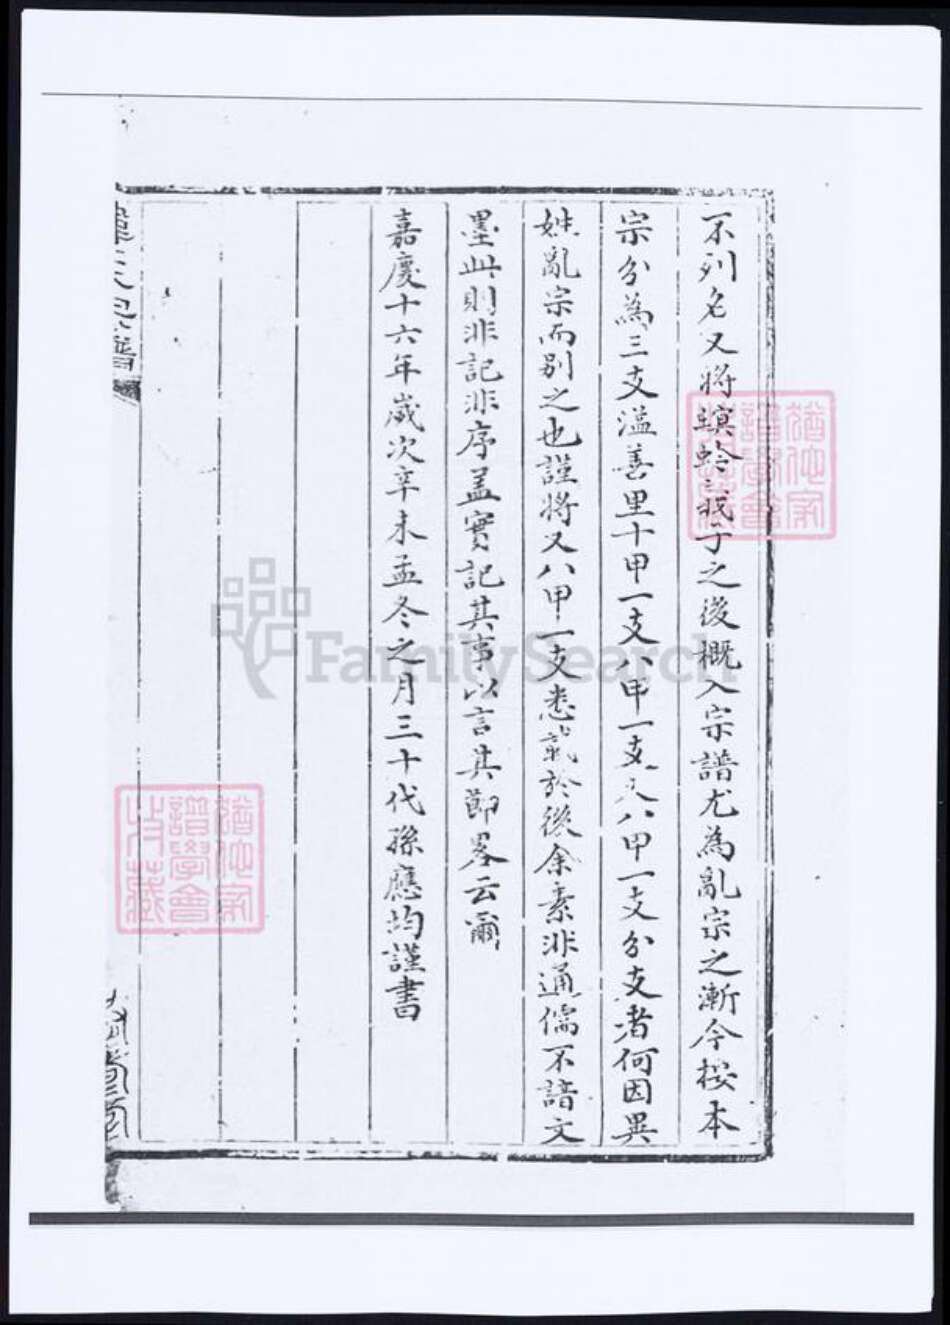 不列名又將螟蛉武子之後概入宗譜尤為亂宗之漸今按本
宗分為三支溢善里十甲一支八甲一支又八甲一支分支者何因異
姓亂宗而別之也謹將又八甲一支悉載於後余素非通儒不諳文
墨此則非記非序盖實記其事以言其節畧云爾
嘉慶十六年歲次辛未孟冬之月三十代孫應均謹書
譜
FamilySearch
譜學會
譜學會
收藏